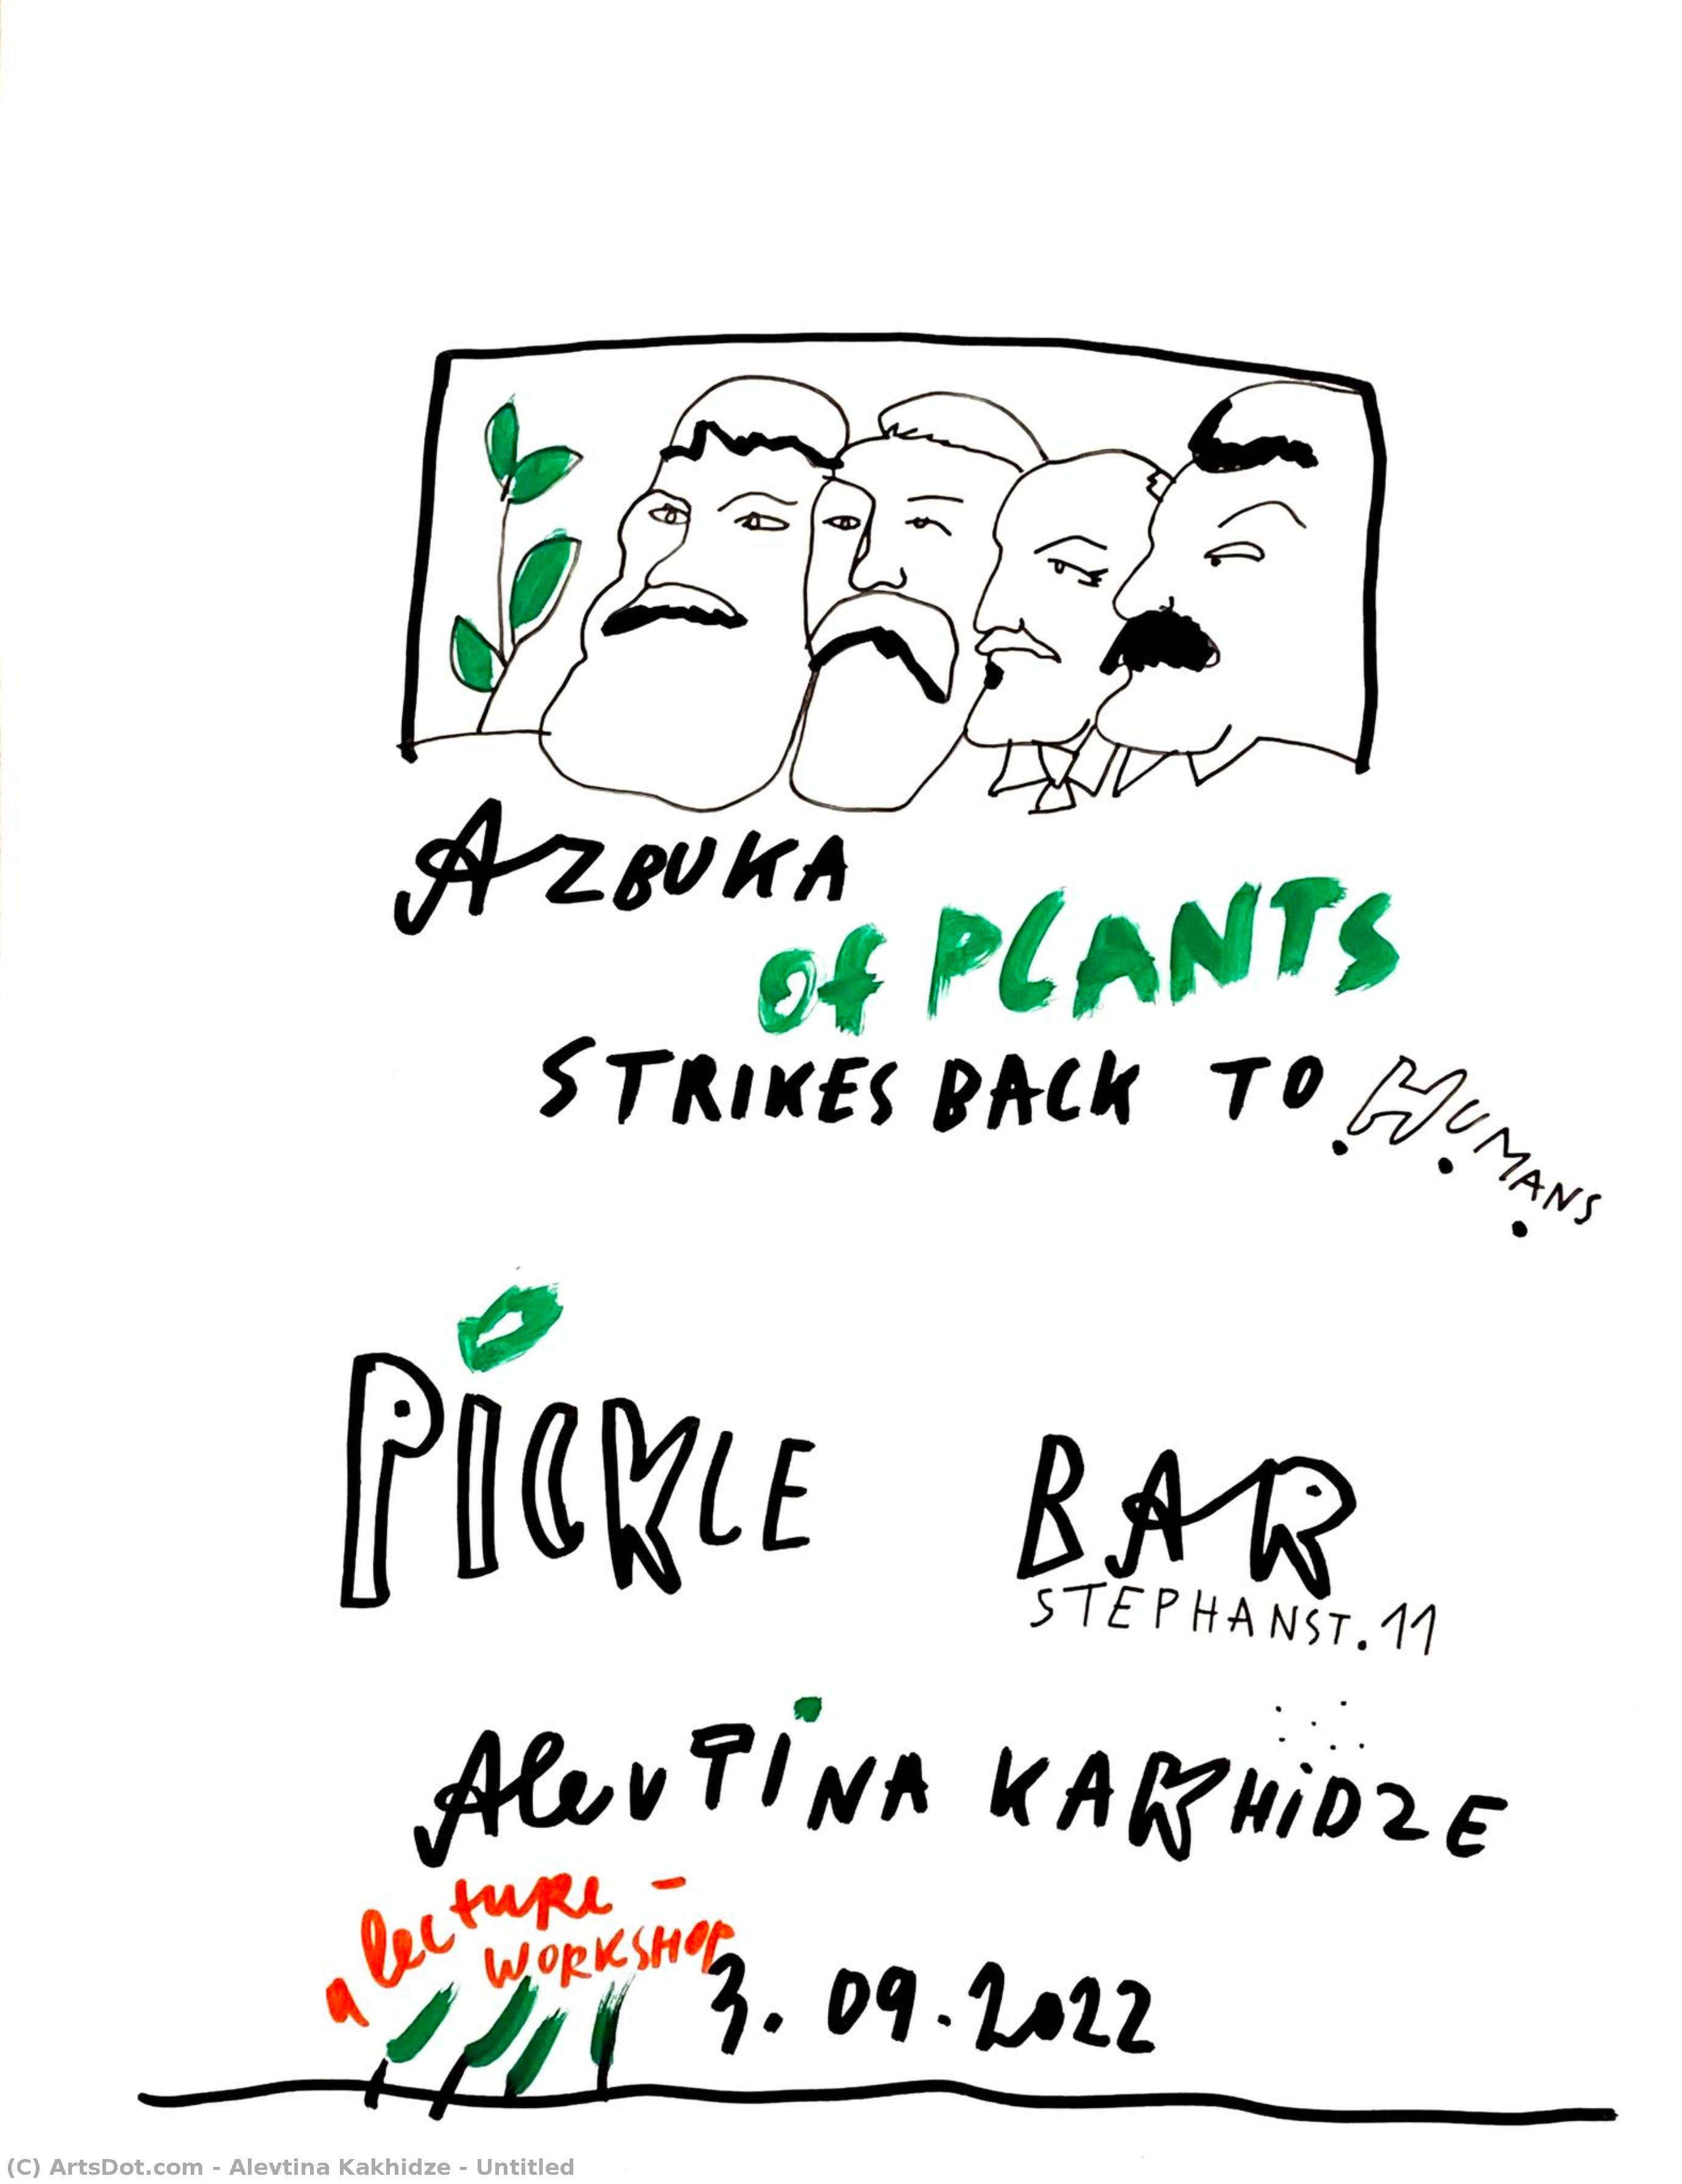 AZBUKA
of PLANTS
STRIKES BACK TO HUMANS
PiCKLE BAR
STEPHANST. 11
AlevTiNA KAKHiDZE
a lecture -
WORKSHOP
3. 09. 2022
(C) ArtsDot.com - Alevtina Kakhidze - Untitled